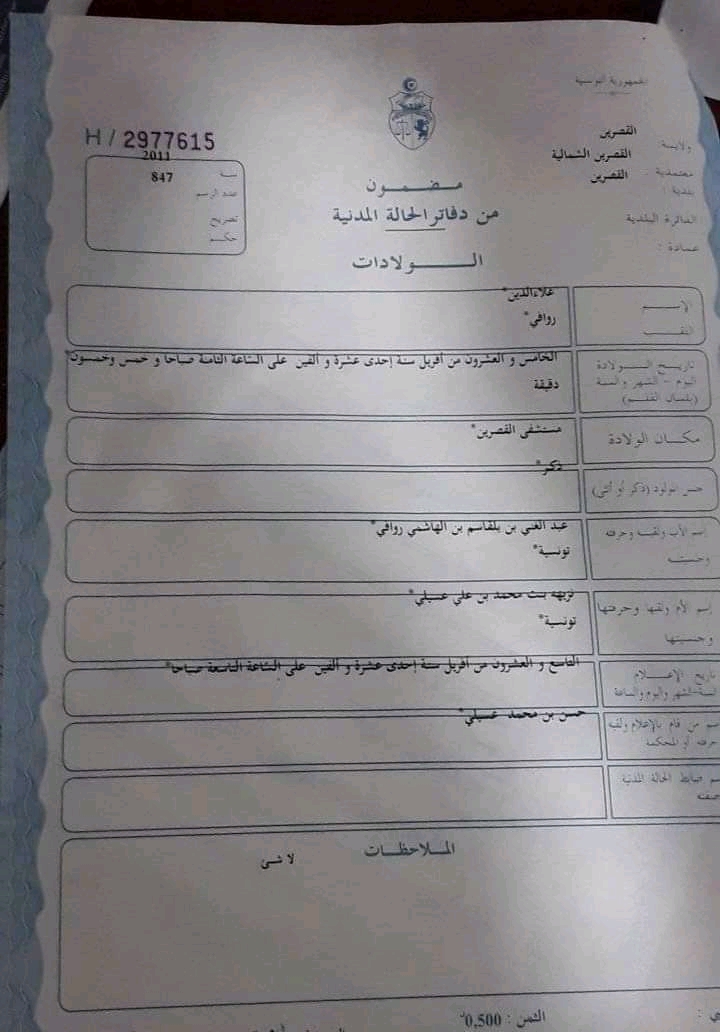 الجمهورية التونسية
ولاية: القصرين
معتمدية: القصرين الشمالية
بلدية: القصرين
الدائرة البلدية
عمادة:
H / 2977615
سنة 2011
عدد الرسم 847
تصريح
حكم
مضمون
من دفاتر الحالة المدنية
الولادات
الإسم علاءالدين*
اللقب روافي*
تاريخ الولادة الخامس و العشرون من أفريل سنة إحدى عشرة و ألفين على الساعة الثامنة صباحا و خمس وخمسون*
اليوم - الشهر والسنة دقيقة
(بلسان القلم)
مكان الولادة مستشفى القصرين*
جنس المولود (ذكر أو أنثى) ذكر*
إسم الأب ولقبه وحرفته عبد الغني بن بلقاسم بن الهاشمي روافي*
وجنسيته تونسية*
إسم الأم ولقبها وحرفتها نزيهه بنت محمد بن علي عسيلي*
وجنسيتها تونسية*
تاريخ الإعلام التاسع و العشرون من أفريل سنة إحدى عشرة و ألفين على الساعة التاسعة صباحا*
السنة-الشهر واليوم والساعة
إسم من قام بالإعلام ولقبه حسن بن محمد عسيلي*
حرفته أو المحكمة
إسم ضابط الحالة المدنية
وصفته
الملاحظات
لا شئ
الثمن : 0,500